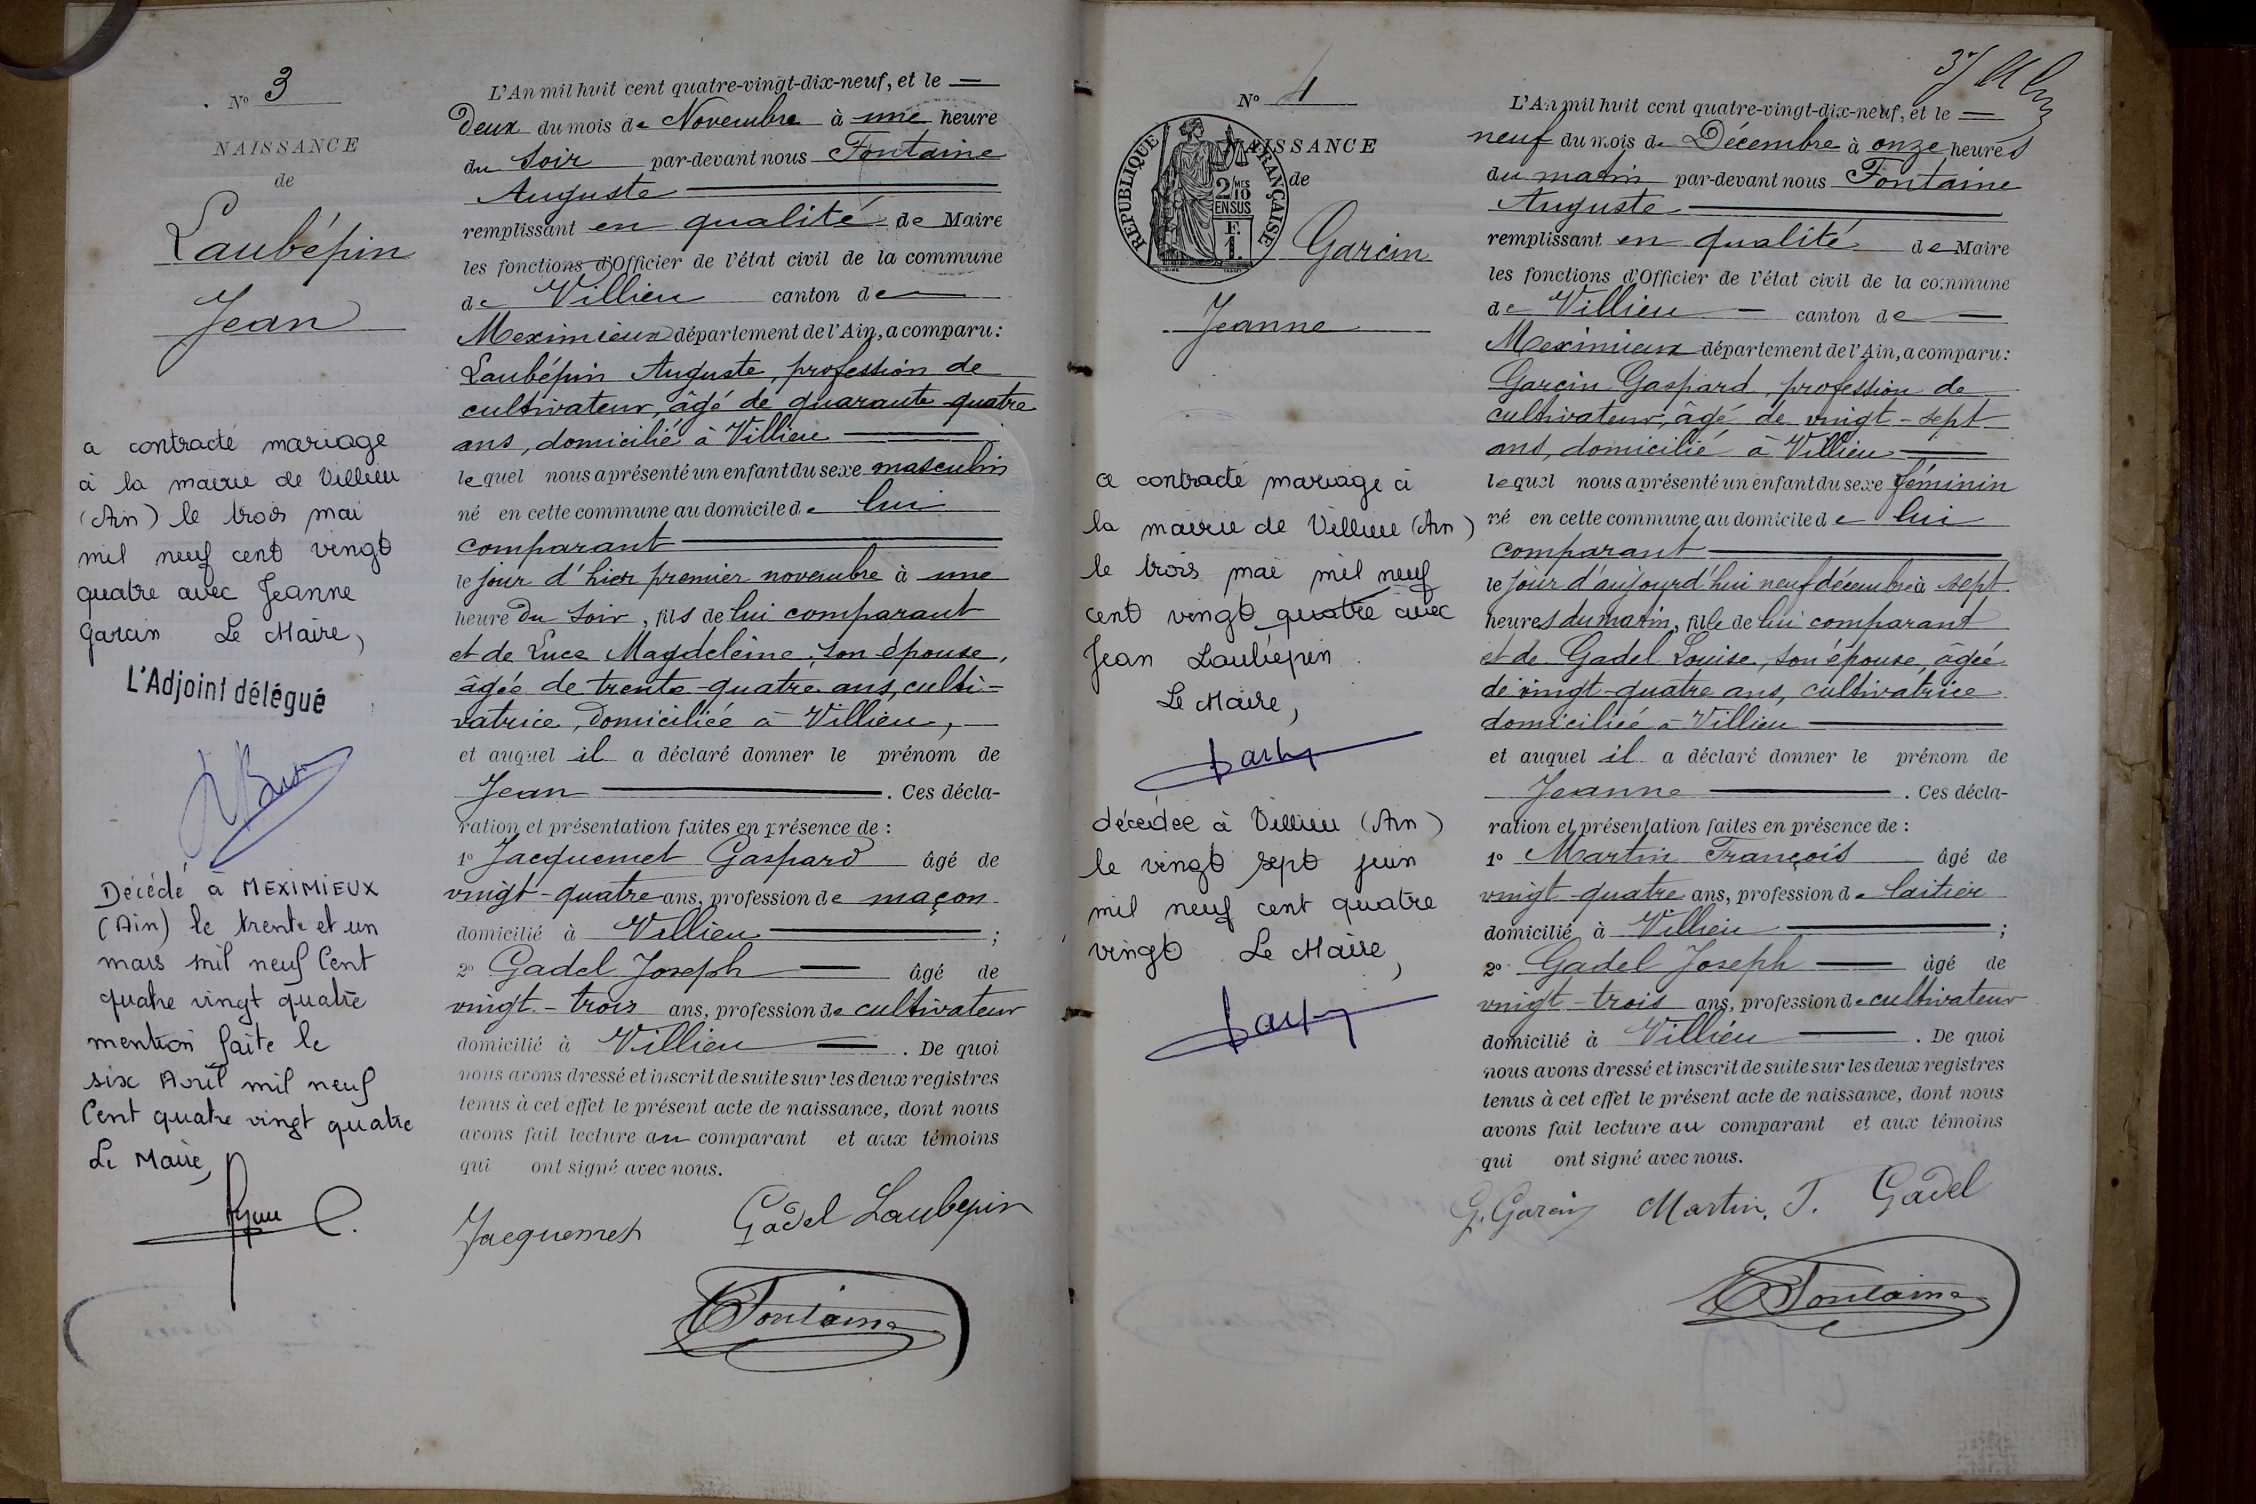 Nº 3
NAISSANCE
de
Laubépin
Jean
a contracté mariage
à la mairie de Villieu
(Ain) le trois mai
mil neuf cent vingt
quatre avec Jeanne
Garcin Le Maire,
L'Adjoint délégué
Décédé à MEXIMIEUX
(Ain) le trente et un
mars mil neuf Cent
quatre vingt quatre
mention faite le
six Avril mil neuf
Cent quatre vingt quatre
Le Maire,
L'An mil huit cent quatre-vingt-dix-neuf, et le
Deux du mois de Novembre à une heure
du Soir par-devant nous Fontaine
Auguste
remplissant en qualité de Maire
les fonctions d'Officier de l'état civil de la commune
de Villieu canton de
Meximieux département de l'Ain, a comparu:
Laubépin Auguste, profession de
cultivateur, âgé de quarante-quatre
ans, domicilié à Villieu
lequel nous a présenté un enfant du sexe masculin
né en cette commune au domicile de lui
comparant
le jour d'hier premier novembre à une
heure du Soir, fils de lui comparant
et de Luce Magdeleine, son épouse,
âgée de trente-quatre ans, culti-
vatrice, domiciliée à Villieu,
et auquel il a déclaré donner le prénom de
Jean. Ces décla-
ration et présentation faites en présence de :
1º Jacquemet Gaspard âgé de
vingt-quatre ans, profession de maçon
domicilié à Villieu ;
2º Gadel Joseph âgé de
vingt-trois ans, profession de cultivateur
domicilié à Villieu. De quoi
nous avons dressé et inscrit de suite sur les deux registres
tenus à cet effet le présent acte de naissance, dont nous
avons fait lecture au comparant et aux témoins
qui ont signé avec nous.
Jacquemet Gadel Laubepin
Fontaine
Nº 4
NAISSANCE
de
RÉPUBLIQUE FRANÇAISE
2/10 MES
EN SUS
F.
1.
Garcin
Jeanne
a contracté mariage à
la mairie de Villieu (Ain)
le trois mai mil neuf
cent vingt quatre avec
Jean Laubépin.
Le Maire,
décédée à Villieu (Ain)
le vingt sept juin
mil neuf cent quatre
vingt Le Maire,
L'An mil huit cent quatre-vingt-dix-neuf, et le
neuf du mois de Décembre à onze heures
du matin par-devant nous Fontaine
Auguste
remplissant en qualité de Maire
les fonctions d'Officier de l'état civil de la commune
de Villieu canton de
Meximieux département de l'Ain, a comparu:
Garcin Gaspard, profession de
cultivateur, âgé de vingt-sept
ans, domicilié à Villieu
lequel nous a présenté un enfant du sexe féminin
né en cette commune au domicile de lui
comparant
le jour d'aujourd'hui neuf décembre à sept
heures du matin, fille de lui comparant
et de Gadel Louise, son épouse, âgée
de vingt-quatre ans, cultivatrice
domiciliée à Villieu
et auquel il a déclaré donner le prénom de
Jeanne. Ces décla-
ration et présentation faites en présence de :
1º Martin François âgé de
vingt-quatre ans, profession de laitier
domicilié à Villieu ;
2º Gadel Joseph âgé de
vingt-trois ans, profession de cultivateur
domicilié à Villieu. De quoi
nous avons dressé et inscrit de suite sur les deux registres
tenus à cet effet le présent acte de naissance, dont nous
avons fait lecture au comparant et aux témoins
qui ont signé avec nous.
G. Garcin Martin. F. Gadel
Fontaine